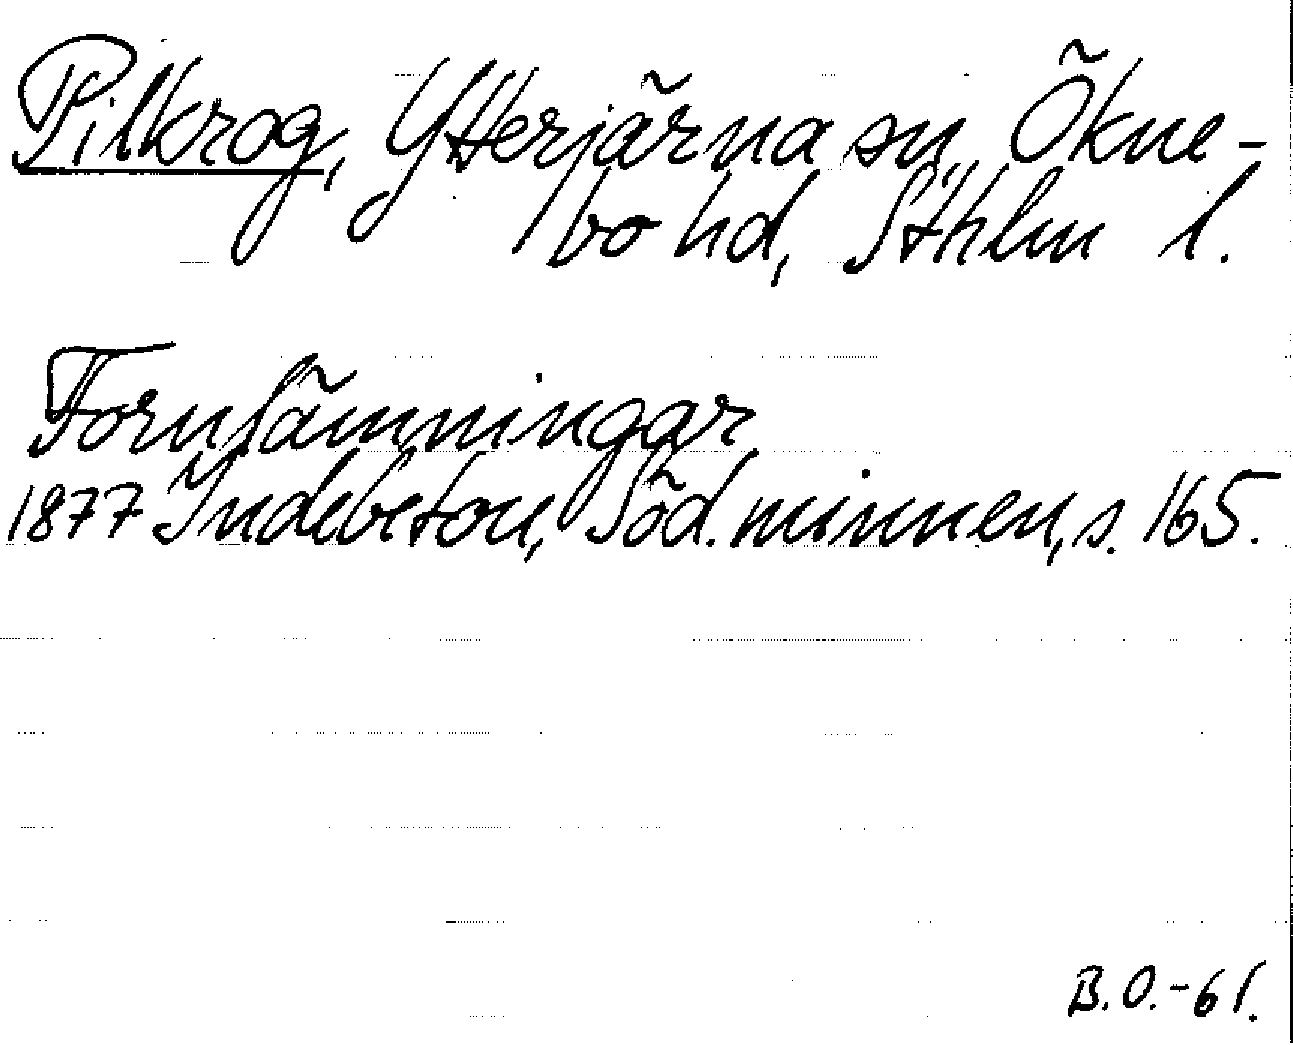 Pilkrog, Ytterjärna sn, Ökne-
bo hd, Sthlm l.
Fornlämningar
1877 Indebetou, Söd. minnen, s. 165.
B.O.-61.